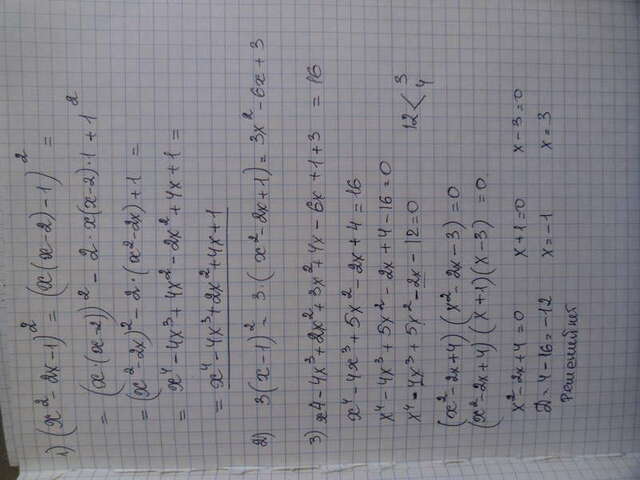 1) (x² - 2x - 1)² = (x(x-2) - 1)² =
= (x·(x-2))² - 2·x(x-2)·1 + 1²
= (x² - 2x)² - 2·(x² - 2x) + 1 =
= x⁴ - 4x³ + 4x² - 2x² + 4x + 1 =
= x⁴ - 4x³ + 2x² + 4x + 1
2) 3(x-1)² = 3·(x² - 2x + 1) = 3x² - 6x + 3
3) x4 - 4x³ + 2x² + 3x² + 4x - 6x + 1 + 3 = 16
x⁴ - 4x³ + 5x² - 2x + 4 = 16
x⁴ - 4x³ + 5x² - 2x + 4 - 16 = 0
x⁴ - 4x³ + 5x² - 2x - 12 = 0 12 < 3 4
(x² - 2x + 4) (x² - 2x - 3) = 0
(x² - 2x + 4) (x + 1)(x - 3) = 0
x² - 2x + 4 = 0 x + 1 = 0 x - 3 = 0
D = 4 - 16 = -12 x = -1 x = 3
Решений нет